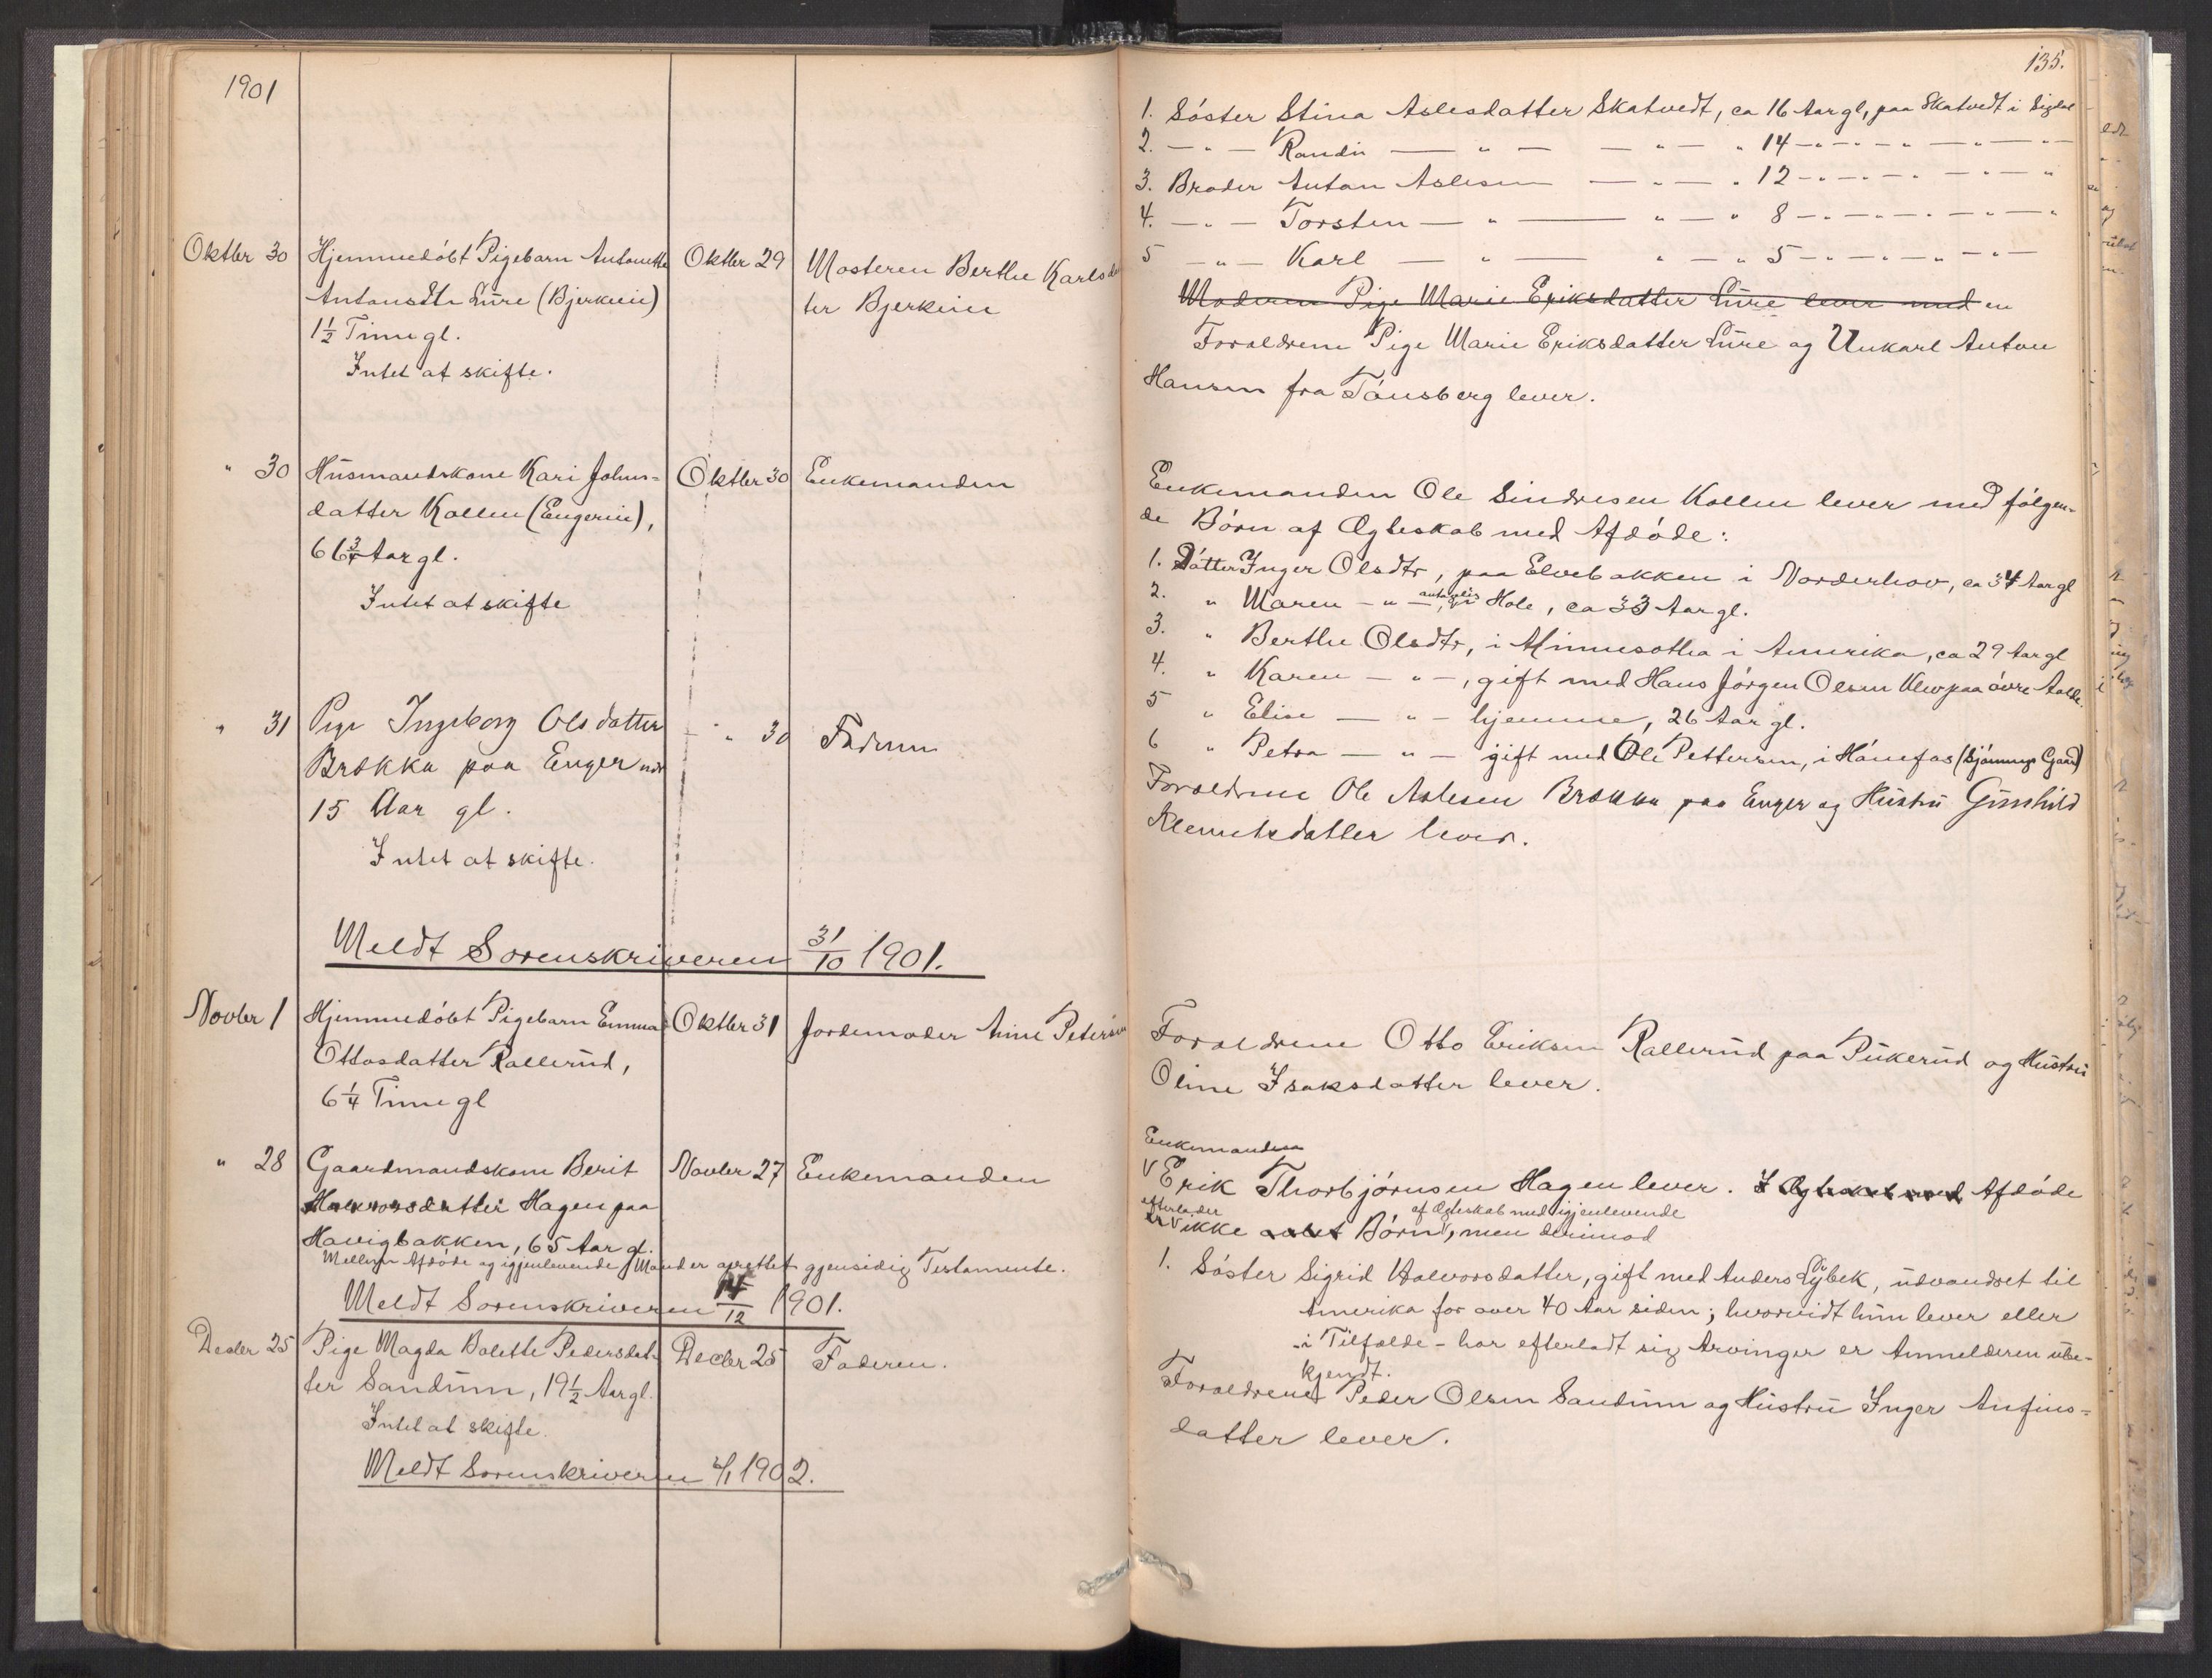 1901
Oktbr 30 Hjemmedøbt Pigebarn Antonette Oktbr 29 Mosteren Berthe Karlsdat
Antonsdtr Lüre (Bjerkeie) ter Bjerkeie
1 1/2 Time gl.
Intet at skifte.
" 30 Hüsmandskone Kari Johns= Oktbr 30 Enkemanden
datter Kollen (Engereie),
66 3/4 Aar gl.
Intet at skifte
" 31 Pige Ingeborg Olsdatter - " 30 Faderen
Brække paa Enger
15 Aar gl.
Intet at skifte.
Meldt Sorenskriveren 31/10 1901.
Novbr 1 Hjemmedøbt Pigebarn Emma Oktbr 31 Jordemoder Anne Petersen
Ottosdatter Rallerüd,
6 1/4 Time gl
" 28 Gaardmandskone Berit Novbr 27 Enkemanden
Halvorsdatter Hagen paa
Hovigbakken, 65 Aar gl.
Mellem Afdøde og igjenlevende Mand er oprettet gjensidig Testamente.
Meldt Sorenskriveren 14/12 1901.
Decbr 25 Pige Magda Bolette Pedersdat- Decbr 25 Faderen.
ter Sandüm, 19 1/2 Aar gl.
Intet at skifte.
Meldt Sorenskriveren 2/1 1902.
135.
1. Søster Stina Aslesdatter Skatvedt, ca 16 Aar gl, paa Skatvedt i Sigdal
2. — " — Randi — " — — " — " 14 — " — " — " — " — " —
3. Broder Anton Aslesen — " — " 12 — " — " — " — " — "
4. — " — Torsten — " — " — " 8 — " — " — " — " — "
5 — " — Karl — " — " — " 5 — " — " — " — " —
Moderen Pige Marie Eriksdatter Lüre lever med en
Forældrene Pige Marie Eriksdatter Lüre og Unkarl Anton
Hansen fra Tønsberg lever.
Enkemanden Ole Sindresen Kollen lever med følgen=
de Børn af Ægteskab med Afdøde:
1. Datter Inger Olsdtr, paa Elvebakken i Norderhov, ca 34 Aar gl
2. " Maren — " —, antagelig i Hole, ca 33 Aar gl.
3. " Berthe Olsdtr, i Minnesotha i Amerika, ca 29 Aar gl
4. " Karen — " —, gift med Hans Jørgen Olsen paa øvre
5 " Elise — " — hjemme, 26 Aar gl.
6 " Petra — " — gift med Ole Pettersen, i Hønefos (Gaard)
Forældrene Ole Aslesen Brække paa Enger og Hüstrü Günhild
Klemetsdatter lever.
Forældrene Otto Eriksen Rallerüd paa Pükerüd og Hüstrü
Oline Isaksdatter lever.
Enkemanden
Erik Thorbjørnsen Hagen lever. I Ægteskab med Afdøde
efterlader af Ægteskab med igjenlevende
er ikke avlet Børn, men derimod
1. Søster Sigrid Halvorsdatter, gift med Anders Lybek, üdvandret til
Amerika for over 40 Aar siden; hvorvidt hün lever eller
- i Tilfælde - har efterladt sig Arvinger er Anmelderen übe-
kjendt.
Forældrene Peder Olsen Sandüm og Hüstrü Inger Anfins=
datter lever.